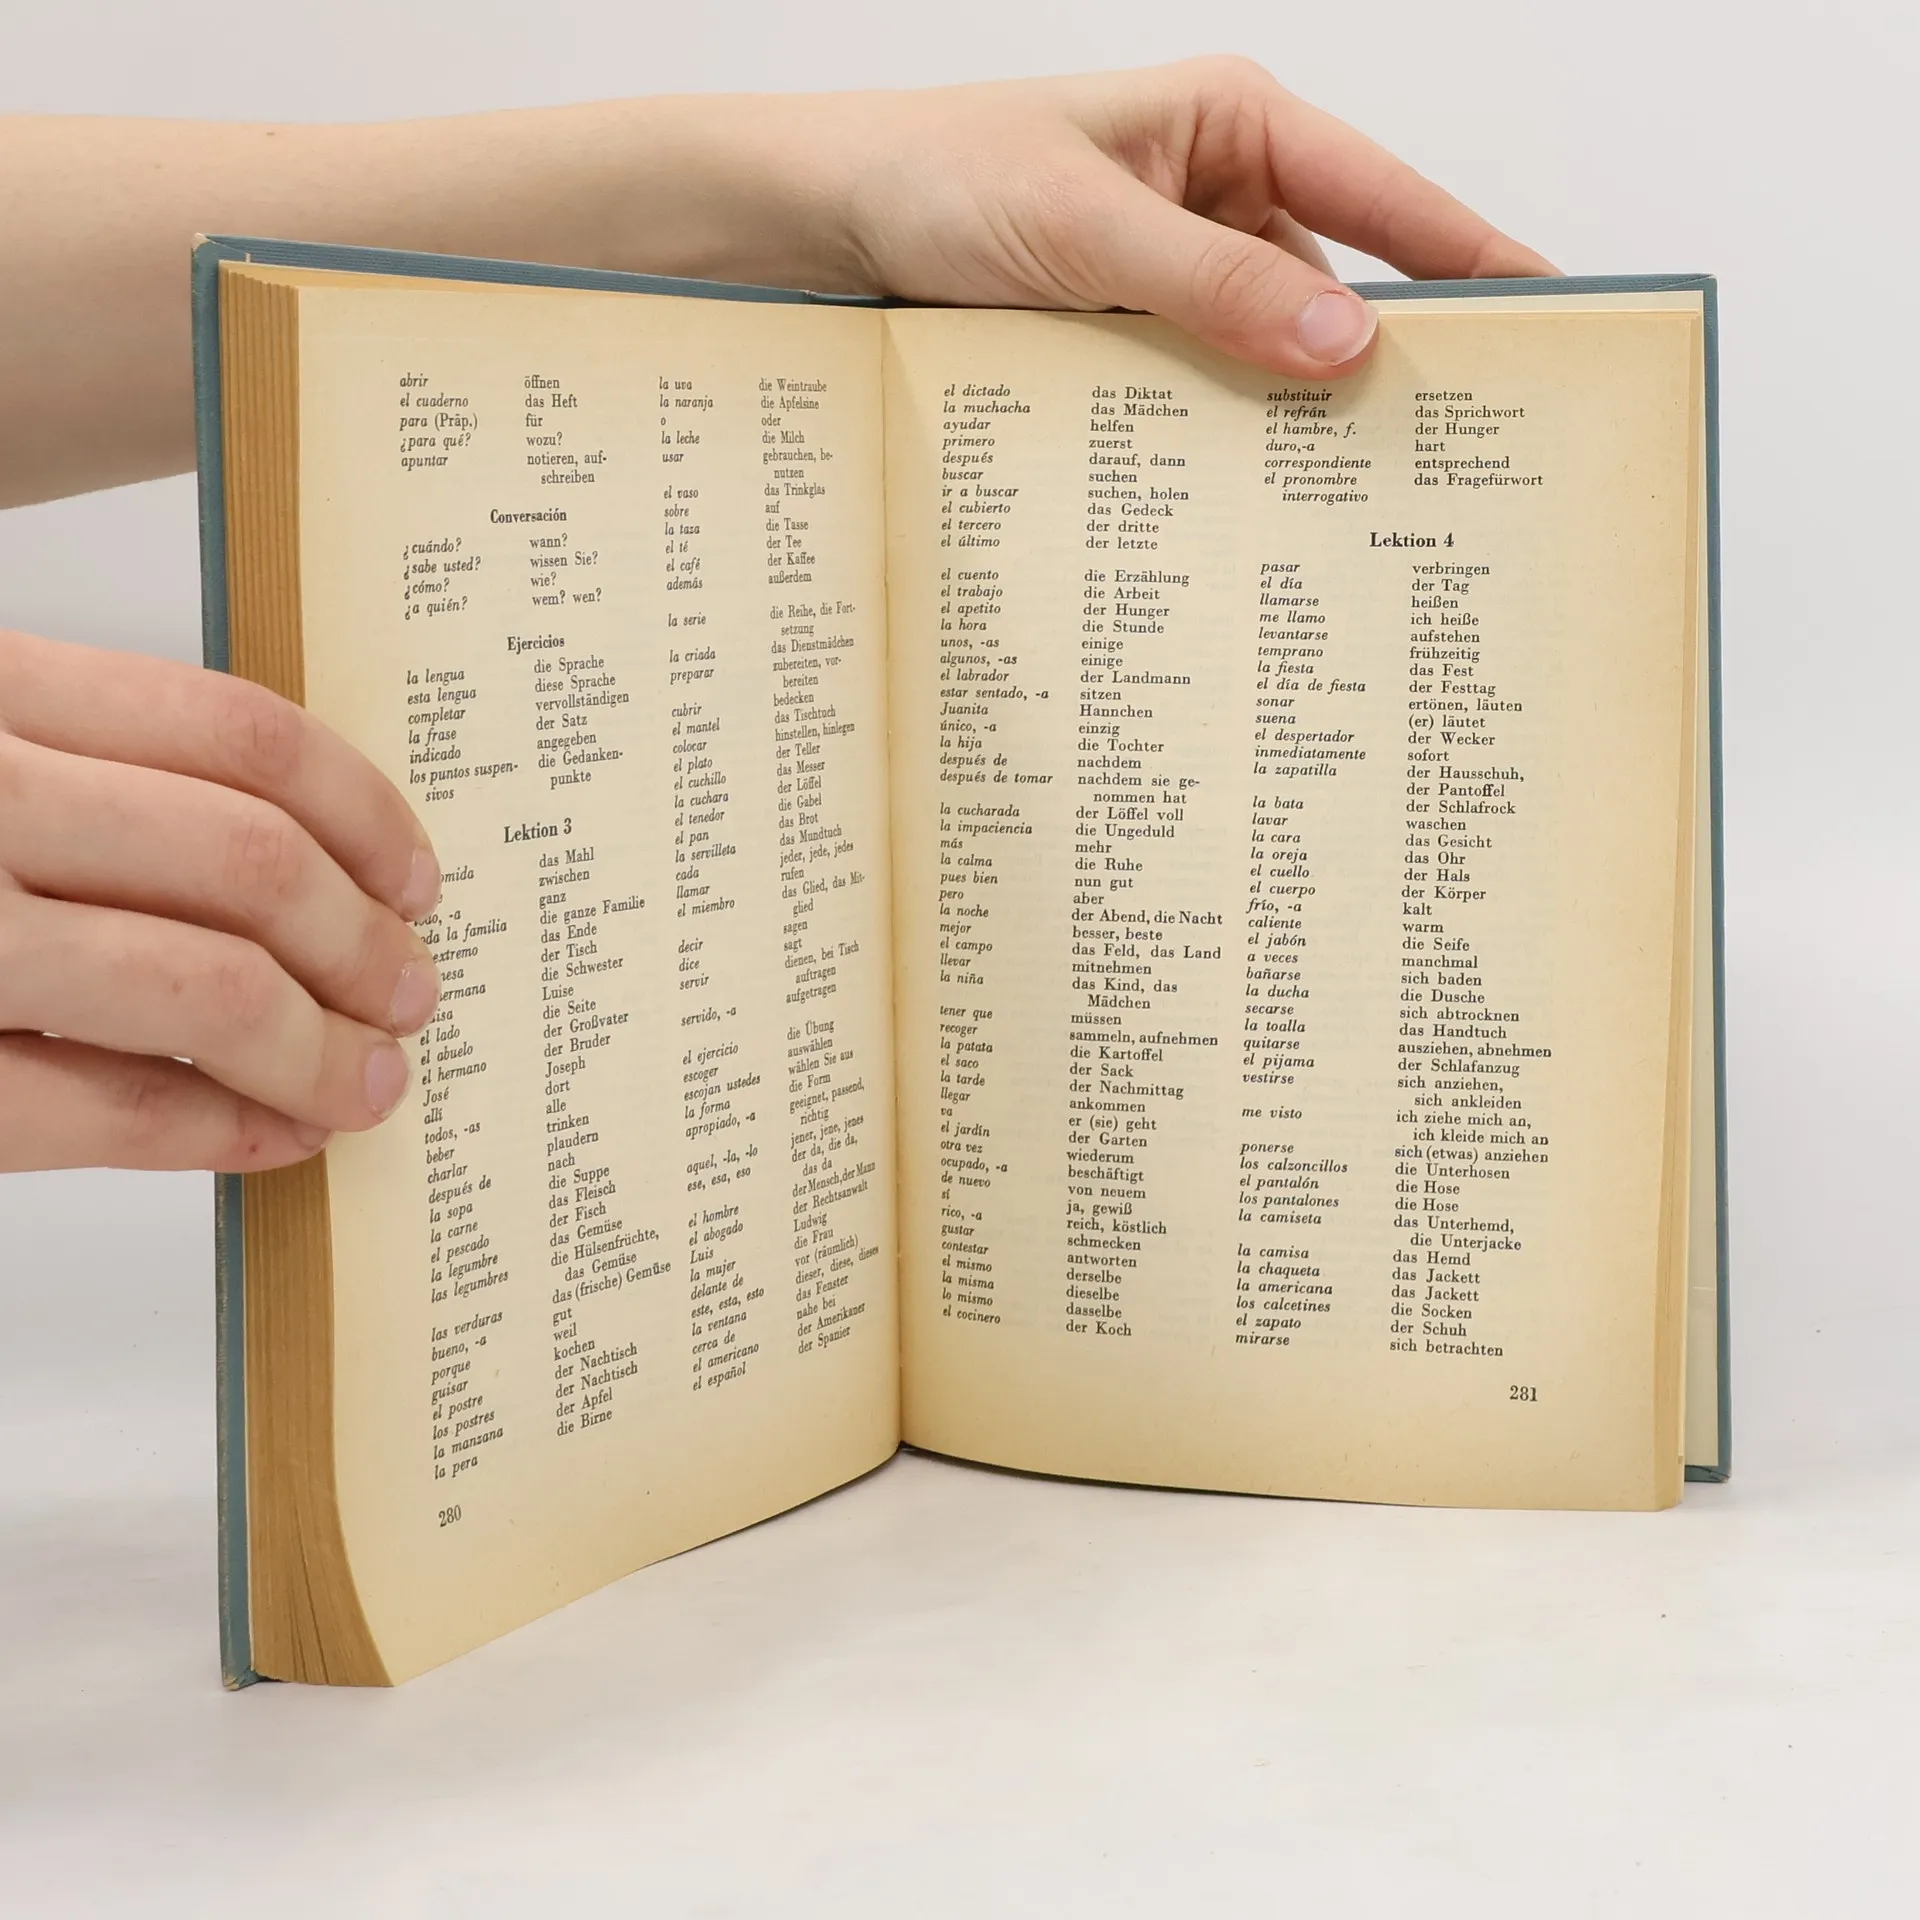 abrir öffnen
el cuaderno das Heft
para (Präp.) für
¿para qué? wozu?
apuntar notieren, auf-
schreiben
Conversación
¿cuándo? wann?
¿sabe usted? wissen Sie?
¿cómo? wie?
¿a quién? wem? wen?
Ejercicios
la lengua die Sprache
esta lengua diese Sprache
completar vervollständigen
la frase der Satz
indicado angegeben
los puntos suspen- die Gedanken-
sivos punkte
Lektion 3
omida das Mahl
e zwischen
do, -a ganz
oda la familia die ganze Familie
extremo das Ende
mesa der Tisch
hermana die Schwester
uisa Luise
el lado die Seite
el abuelo der Großvater
el hermano der Bruder
José Joseph
allí dort
todos, -as alle
beber trinken
charlar plaudern
después de nach
la sopa die Suppe
la carne das Fleisch
el pescado der Fisch
la legumbre das Gemüse
las legumbres die Hülsenfrüchte,
das Gemüse
las verduras das (frische) Gemüse
bueno, -a gut
porque weil
guisar kochen
el postre der Nachtisch
los postres der Nachtisch
la manzana der Apfel
la pera die Birne
280
la uva die Weintraube
la naranja die Apfelsine
o oder
la leche die Milch
usar gebrauchen, be-
nutzen
el vaso das Trinkglas
sobre auf
la taza die Tasse
el té der Tee
el café der Kaffee
además außerdem
la serie die Reihe, die Fort-
setzung
la criada das Dienstmädchen
preparar zubereiten, vor-
bereiten
cubrir bedecken
el mantel das Tischtuch
colocar hinstellen, hinlegen
el plato der Teller
el cuchillo das Messer
la cuchara der Löffel
el tenedor die Gabel
el pan das Brot
la servilleta das Mundtuch
cada jeder, jede, jedes
llamar rufen
el miembro das Glied, das Mit-
glied
decir sagen
dice sagt
servir dienen, bei Tisch
auftragen
servido, -a aufgetragen
el ejercicio die Übung
escoger auswählen
escojan ustedes wählen Sie aus
la forma die Form
apropiado, -a geeignet, passend,
richtig
aquel, -la, -lo jener, jene, jenes
ese, esa, eso der da, die da,
das da
el hombre der Mensch, der Mann
el abogado der Rechtsanwalt
Luis Ludwig
la mujer die Frau
delante de vor (räumlich)
este, esta, esto dieser, diese, dieses
la ventana das Fenster
cerca de nahe bei
el americano der Amerikaner
el español der Spanier
el dictado das Diktat
la muchacha das Mädchen
ayudar helfen
primero zuerst
después darauf, dann
buscar suchen
ir a buscar suchen, holen
el cubierto das Gedeck
el tercero der dritte
el último der letzte
el cuento die Erzählung
el trabajo die Arbeit
el apetito der Hunger
la hora die Stunde
unos, -as einige
algunos, -as einige
el labrador der Landmann
estar sentado, -a sitzen
Juanita Hannchen
único, -a einzig
la hija die Tochter
después de nachdem
después de tomar nachdem sie ge-
nommen hat
la cucharada der Löffel voll
la impaciencia die Ungeduld
más mehr
la calma die Ruhe
pues bien nun gut
pero aber
la noche der Abend, die Nacht
mejor besser, beste
el campo das Feld, das Land
llevar mitnehmen
la niña das Kind, das
Mädchen
tener que müssen
recoger sammeln, aufnehmen
la patata die Kartoffel
el saco der Sack
la tarde der Nachmittag
llegar ankommen
va er (sie) geht
el jardín der Garten
otra vez wiederum
ocupado, -a beschäftigt
de nuevo von neuem
sí ja, gewiß
rico, -a reich, köstlich
gustar schmecken
contestar antworten
el mismo derselbe
la misma dieselbe
lo mismo dasselbe
el cocinero der Koch
substituir ersetzen
el refrán das Sprichwort
el hambre, f. der Hunger
duro,-a hart
correspondiente entsprechend
el pronombre das Fragefürwort
interrogativo
Lektion 4
pasar verbringen
el día der Tag
llamarse heißen
me llamo ich heiße
levantarse aufstehen
temprano frühzeitig
la fiesta das Fest
el día de fiesta der Festtag
sonar ertönen, läuten
suena (er) läutet
el despertador der Wecker
inmediatamente sofort
la zapatilla der Hausschuh,
der Pantoffel
la bata der Schlafrock
lavar waschen
la cara das Gesicht
la oreja das Ohr
el cuello der Hals
el cuerpo der Körper
frío, -a kalt
caliente warm
el jabón die Seife
a veces manchmal
bañarse sich baden
la ducha die Dusche
secarse sich abtrocknen
la toalla das Handtuch
quitarse ausziehen, abnehmen
el pijama der Schlafanzug
vestirse sich anziehen,
sich ankleiden
me visto ich ziehe mich an,
ich kleide mich an
ponerse sich (etwas) anziehen
los calzoncillos die Unterhosen
el pantalón die Hose
los pantalones die Hose
la camiseta das Unterhemd,
die Unterjacke
la camisa das Hemd
la chaqueta das Jackett
la americana das Jackett
los calcetines die Socken
el zapato der Schuh
mirarse sich betrachten
281